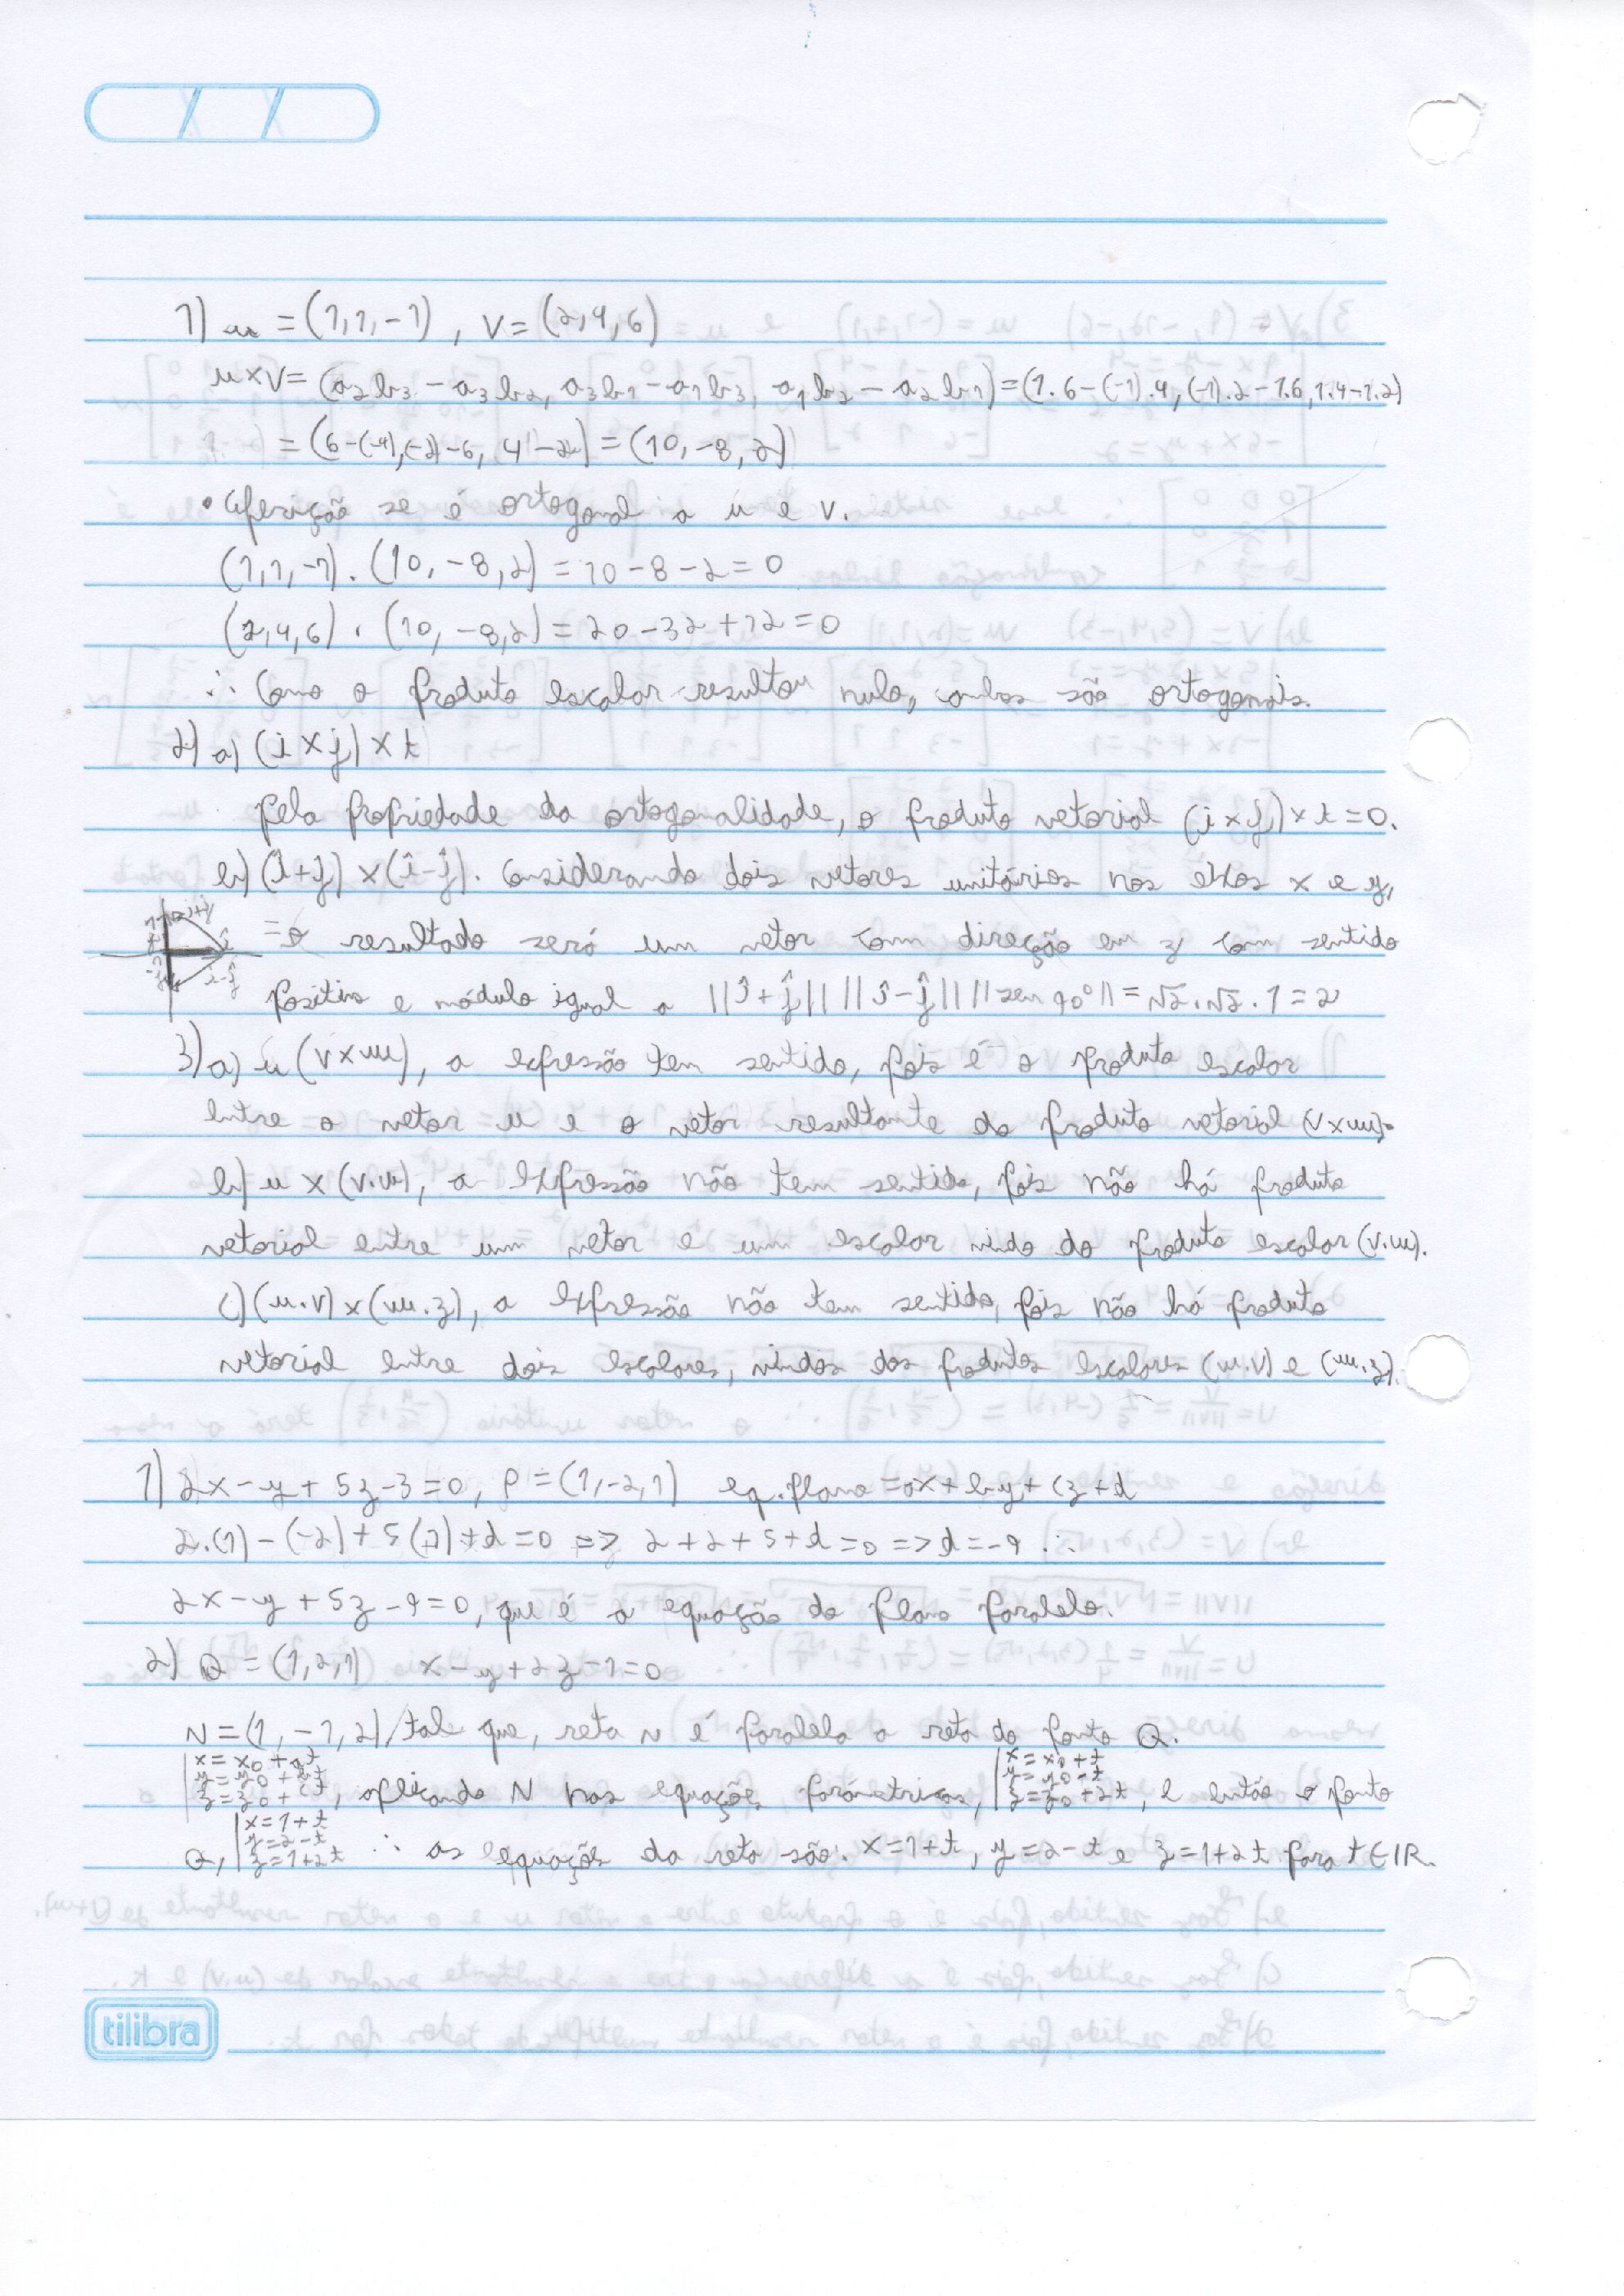 1) u = (1,1,-1) , v = (2,4,6)
u×v = (a₂b₃ - a₃b₂, a₃b₁ - a₁b₃, a₁b₂ - a₂b₁) = (1.6-(-1).4, (-1).2-1.6, 1.4-1.2)
= (6-(-4),(-2)-6, 4-2) = (10,-8,2)
• Aferição se é ortogonal a u e v.
(1,1,-1) . (10,-8,2) = 10-8-2 = 0
(2,4,6) . (10,-8,2) = 20-32+12 = 0
∴ Como o produto escalar resultou nulo, ambos são ortogonais.
2) a) (i × j) × t
Pela propriedade da ortogonalidade, o produto vetorial (i×j)×t = 0.
b) (î+ĵ) × (î-ĵ). Considerando dois vetores unitários nos eixos x e y,
= o resultado será um vetor com direção em z com sentido
positivo e módulo igual a ||î+ĵ|| ||î-ĵ|| ||sen 90°|| = √2.√2.1 = 2
î+ĵ
î
î-ĵ
3) a) u (v×w), a expressão tem sentido, pois é o produto escalar
entre o vetor u e o vetor resultante do produto vetorial (v×w).
b) u × (v.w), a expressão não tem sentido, pois não há produto
vetorial entre um vetor e um escalar vindo do produto escalar (v.w).
c) (u.v) × (w.z), a expressão não tem sentido, pois não há produto
vetorial entre dois escalares, vindos dos produtos escalares (u.v) e (w.z).
1) 2x-y+5z-3=0, P=(1,-2,1) eq. plano = ax+by+cz+d
2.(1)-(-2)+5(1)+d=0 => 2+2+5+d=0 => d=-9 ∴
2x-y+5z-9=0, que é a equação do plano paralelo.
2) Q = (1,2,1) x-y+2z-1=0
N=(1,-1,2)/tal que, reta N é paralela a reta do ponto Q.
|x=x₀+at
|y=y₀+bt
|z=z₀+ct, aplicando N nas equações paramétricas, |x=x₀+t
|y=y₀-t
|z=z₀+2t, e então o ponto
Q, |x=1+t
|y=2-t
|z=1+2t ∴ as equações da reta são: x=1+t, y=2-t e z=1+2t para t∈IR.
tilibra